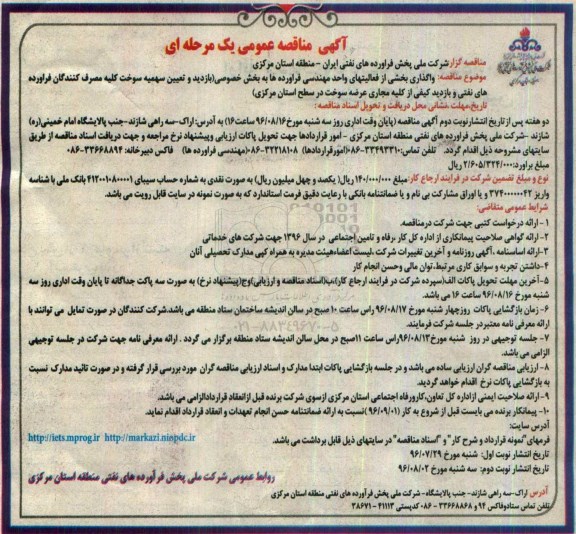 آگهی مناقصه عمومی یک مرحله ای
مناقصه گزار: شرکت ملی پخش فراورده های نفتی ایران - منطقه استان مرکزی
موضوع مناقصه: واگذاری بخشی از فعالیتهای واحد مهندسی فراورده ها به بخش خصوصی(بازدید و تعیین سهمیه سوخت کلیه مصرف کنندگان فراورده
های نفتی و بازدید کیفی از کلیه مجاری عرضه سوخت در سطح استان مرکزی)
تاریخ،مهلت ،نشانی محل دریافت و تحویل اسناد مناقصه:
دو هفته پس از تاریخ انتشارنوبت دوم آگهی مناقصه (پایان وقت اداری روز سه شنبه مورخ ۹۶/۰۸/۱۶ ساعت۱۶) به آدرس: اراک-سه راهی شازند-جنب پالایشگاه امام خمینی(ره)
شازند -شرکت ملی پخش فراورده های نفتی منطقه استان مرکزی - امور قراردادها جهت تحویل پاکات ارزیابی وپیشنهاد نرخ مراجعه و جهت دریافت اسناد مناقصه از طریق
سایتهای مشروحه ذیل اقدام گردد. تلفن تماس:۳۳۴۹۳۳۱۰-۰۸۶(امورقراردادها) ۳۲۲۱۸۱۰۸-۰۸۶(مهندسی فراورده ها) فاکس دبیرخانه: ۳۳۶۶۸۸۹۴-۰۸۶
مبلغ برآورد:۲/۶۰۵/۳۲۴/۰۰۰ ریال
نوع و مبلغ تضمین شرکت در فرایند ارجاع کار: مبلغ ۱۴۰/۰۰۰/۰۰۰ ریال( یکصد و چهل میلیون ریال) به صورت نقدی به شماره حساب سیبای ۴۱۲۰۰۱۰۸۰۰۰۱ بانک ملی با شناسه
واریز ۳۷۴۰۰۰۰۰۴۲ و یا اوراق مشارکت بی نام و یا ضمانتنامه بانکی با رعایت دقیق فرمت استاندارد که به صورت نمونه در سایت فایل رویت می باشد.
شرایط عمومی متقاضی:
۱- ارائه درخواست کتبی جهت شرکت درمناقصه.
۲- ارائه گواهی صلاحیت پیمانکاری از اداره کل کار ،رفاه و تامین اجتماعی در سال ۱۳۹۶ جهت شرکت های خدماتی
۳- ارائه اساسنامه ،آگهی روزنامه و آخرین تغییرات شرکت ،لیست اعضاءهیئت مدیره به همراه کپی مدارک تحصیلی آنان
۴- داشتن تجربه و سوابق کاری مرتبط،توان مالی وحسن انجام کار
۵- آخرین مهلت تحویل پاکات الف(سپرده شرکت در فرایند ارجاع کار)،ب(اسناد مناقصه و ارزیابی)وج(پیشنهاد نرخ) به صورت سه پاکت جداگانه تا پایان وقت اداری روز سه
شنبه مورخ ۹۶/۰۸/۱۶ ساعت ۱۶ می باشد.
۶- زمان بازگشایی پاکات روزچهار شنبه مورخ ۹۶/۰۸/۱۷ راس ساعت ۱۰ صبح در سالن اندیشه ساختمان ستاد منطقه می باشد.شرکت کنندگان در صورت تمایل می توانند با
ارائه معرفی نامه معتبر در جلسه شرکت فرمایند.
۷- جلسه توجیهی در روز شنبه مورخ۹۶/۰۸/۱۳راس ساعت ۱۱صبح در محل سالن اندیشه ستاد منطقه برگزار می گردد . ارائه معرفی نامه جهت شرکت در جلسه توجیهی
الزامی می باشد.
۸- ارزیابی مناقصه گران ارزیابی ساده می باشد و در جلسه بازگشایی پاکات ابتدا مدارک و اسناد ارزیابی مناقصه گران مورد بررسی قرار گرفته و در صورت تائید مدارک نسبت
به بازگشایی پاکات نرخ اقدام خواهد گردید.
۹- ارائه صلاحیت ایمنی ازاداره کل تعاون،کارورفاه اجتماعی استان مرکزی ازسوی شرکت برنده قبل ازانعقاد قراردادالزامی می باشد.
۱۰- پیمانکار برنده می بایست قبل از شروع به کار (۹۶/۰۹/۰۱)نسبت به ارائه ضمانتنامه حسن انجام تعهدات و انعقاد قرارداد اقدام نماید.
آدرس سایت:
http://iets.mprog.ir http://markazi.niopdc.ir
فرمهای"نمونه قرارداد و شرح کار" و "اسناد مناقصه" در سایتهای ذیل قابل برداشت می باشد.
تاریخ انتشار نوبت اول: شنبه مورخ ۹۶/۰۷/۲۹
تاریخ انتشار نوبت دوم: سه شنبه مورخ ۹۶/۰۸/۰۲
روابط عمومی شرکت ملی پخش فرآورده های نفتی منطقه استان مرکزی
آدرس اراک-سه راهی شازند- جنب پالایشگاه- شرکت ملی پخش فرآورده های نفتی منطقه استان مرکزی
تلفن تماس ستادوفاکس ۹۴ و ۳۳۶۶۸۸۶۸-۰۸۶ کدپستی ۴۱۱۱۳-۳۸۶۷۱